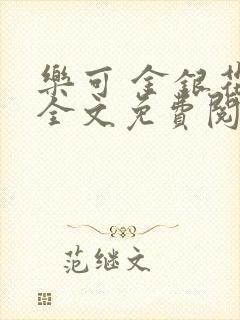 樂可 金銀花
全文免費閱
范继文